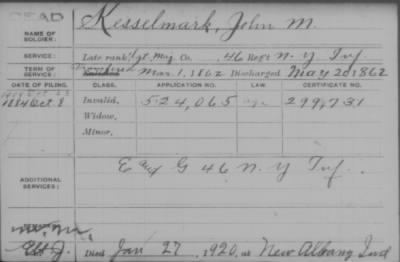 DEAD
NAME OF SOLDIER: Kesselmark, John M.
SERVICE: Late rank, Sgt. Maj. Co. , 46 Reg't N.Y. Inf.
TERM OF SERVICE: Enrolled Mar. 1, 1862 Discharged May 20 1862
DATE OF FILING. CLASS. APPLICATION NO. LAW. CERTIFICATE NO.
1884 Oct. 8 Invalid. 524,065 299,731
Widow.
Minor.
ADDITIONAL SERVICES: E and G 46 N.Y. Inf.
Died Jan 27, 1920, at New Albany Ind